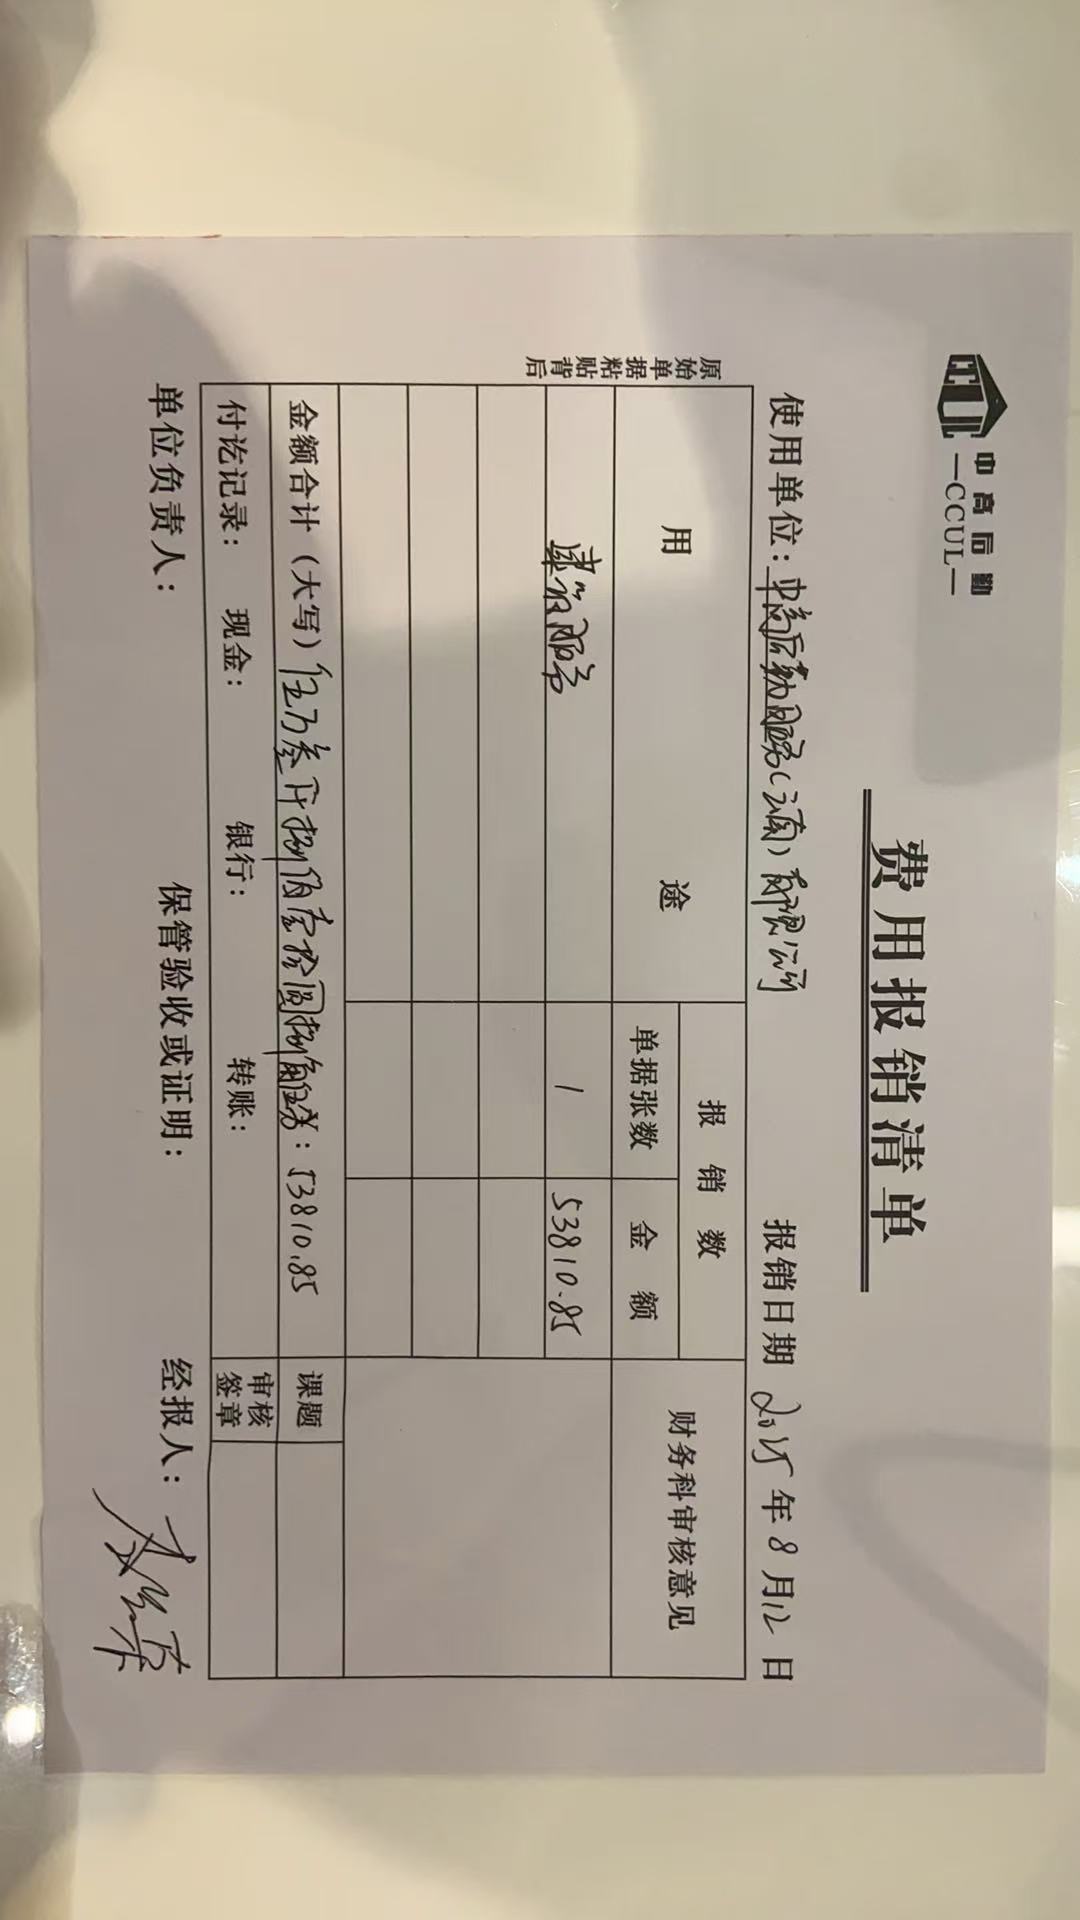 中高后勤
—CCUL—
费用报销清单
使用单位：中高后勤服务（云南）有限公司
报销日期 2025年8月12日
原始单据粘贴背后
用 途
报 销 数
财务科审核意见
单据张数
金 额
建筑服务
1
53810.85
金额合计（大写）伍万叁仟捌佰壹拾圆捌角伍分¥：53810.85
课题
付讫记录： 现金： 银行： 转账：
审核签章
单位负责人： 保管验收或证明： 经报人：